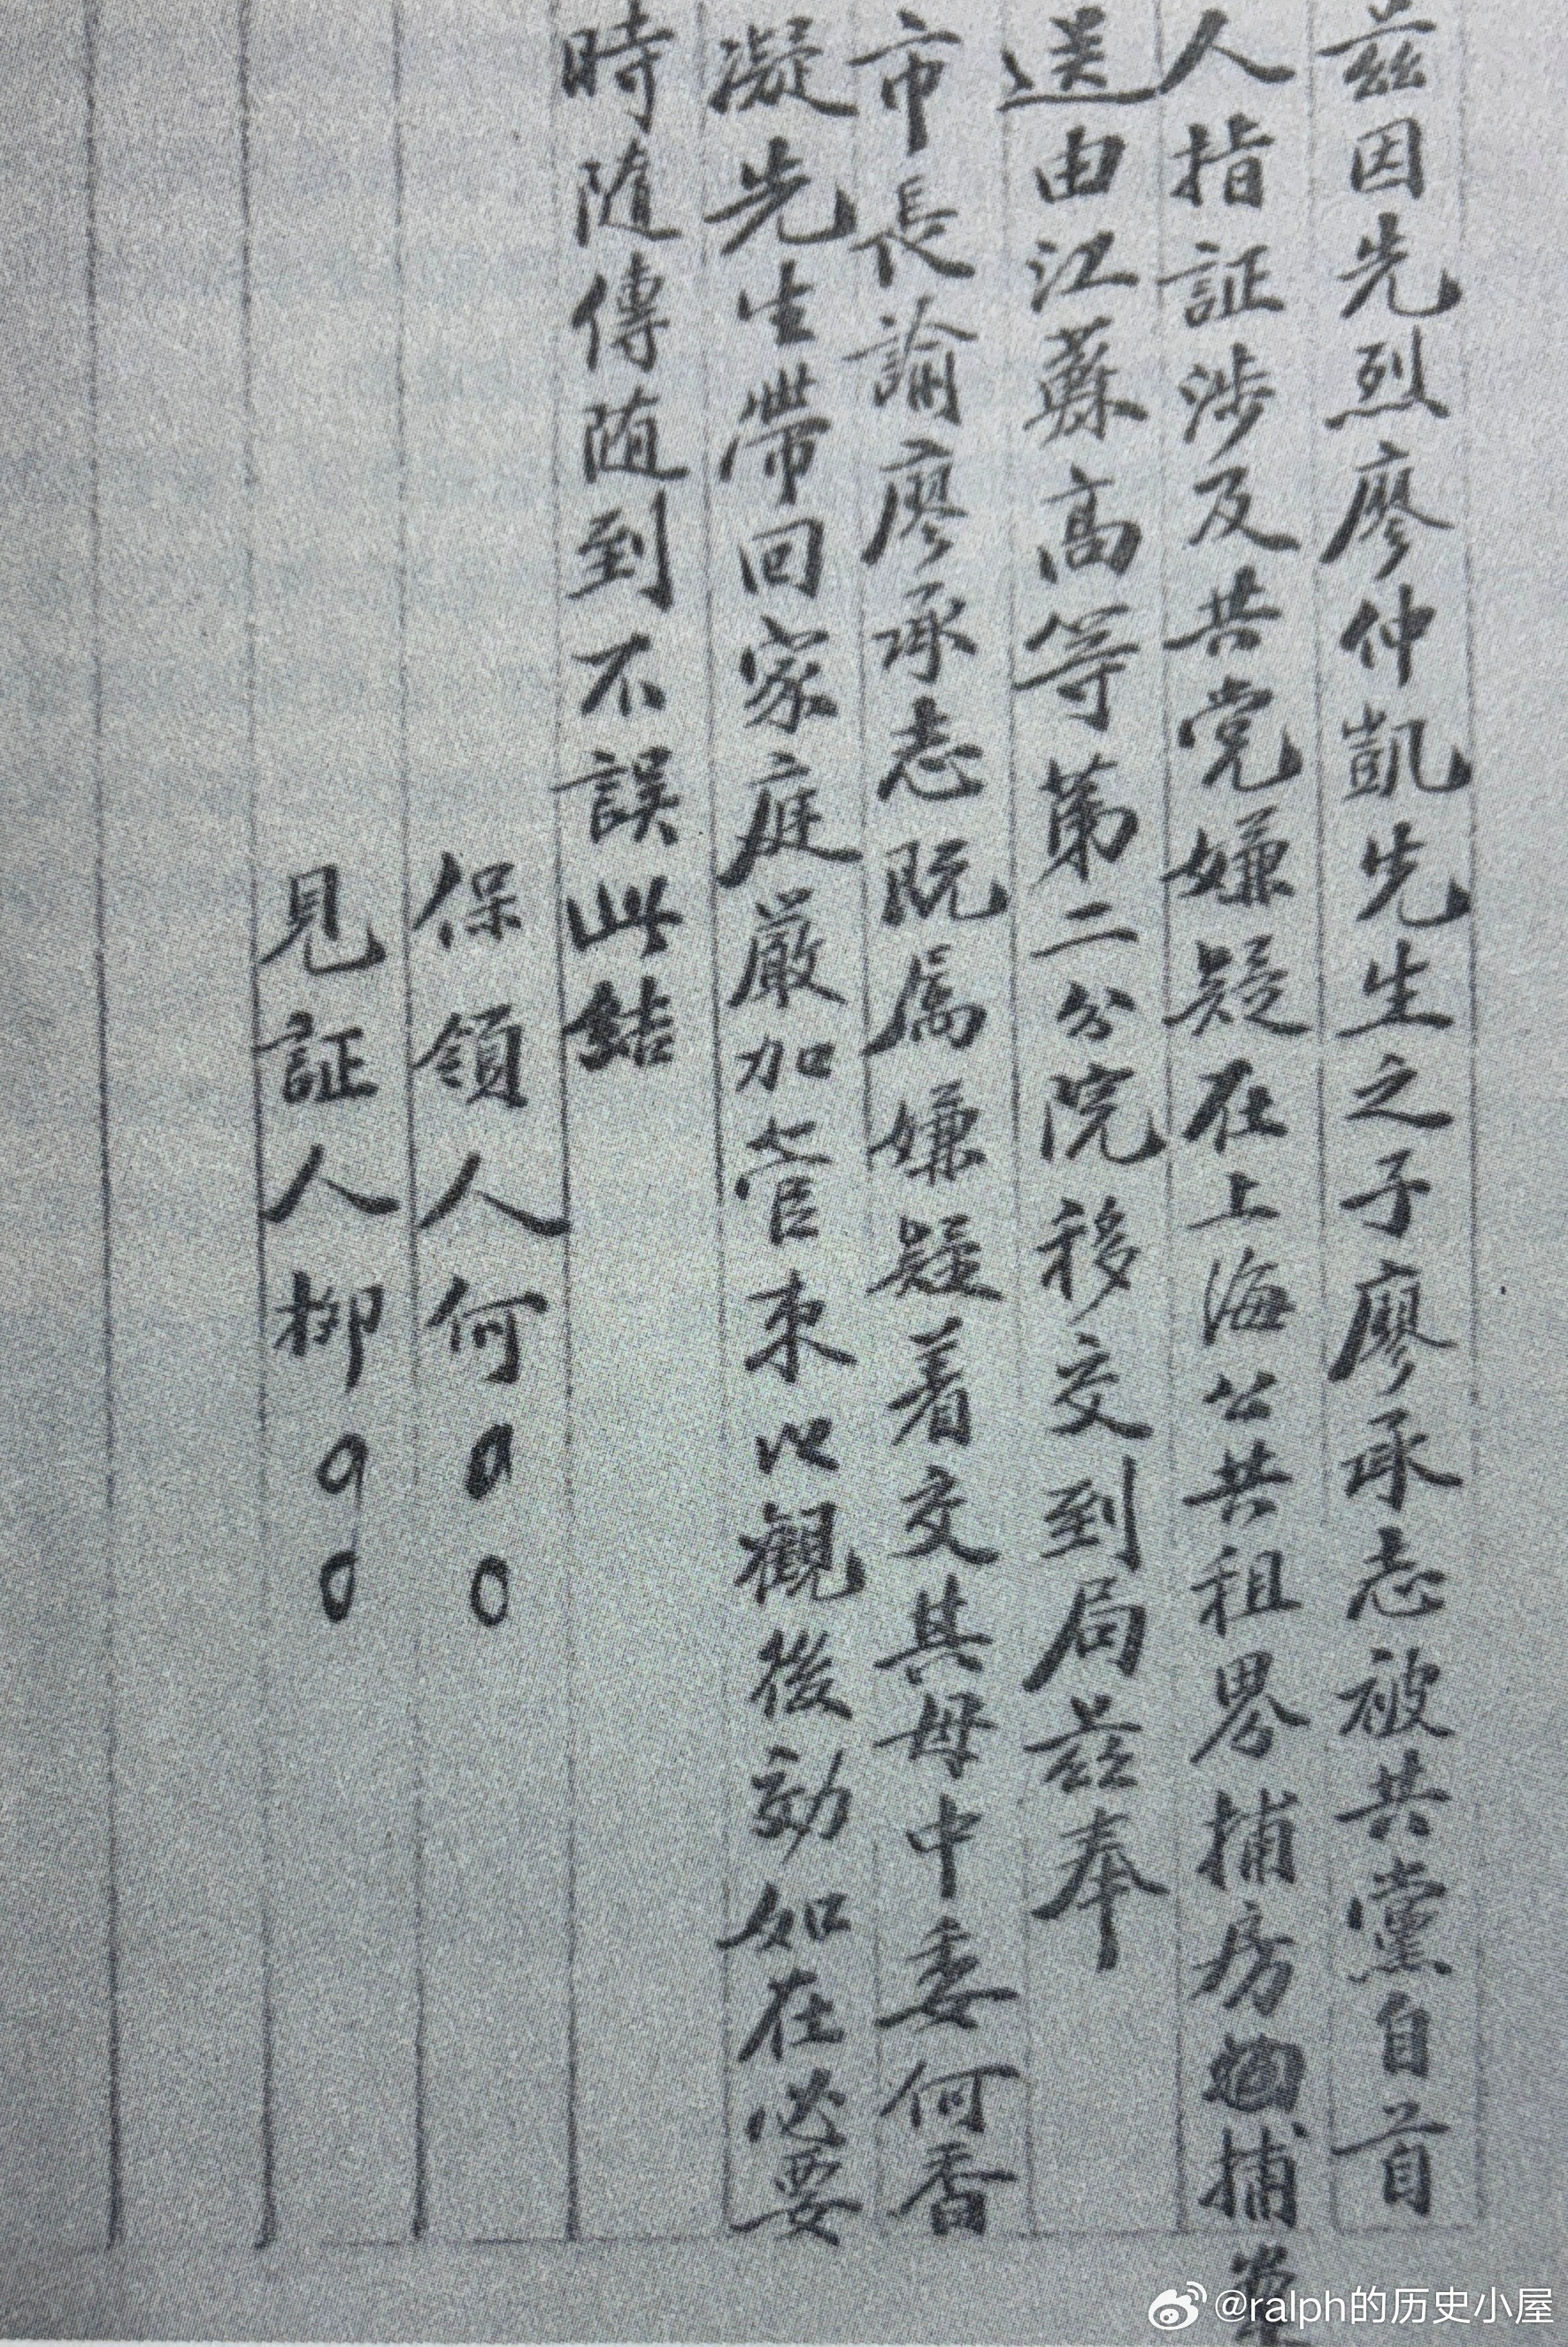 茲因先烈廖仲凱先生之子廖承志被共黨自首
人指証涉及共党嫌疑在上海公共租界捕房捕
送由江蘇高等第二分院移交到局茲奉
市長諭廖承志既属嫌疑着交其母中委何香
凝先生帶回家庭嚴加管束以觀後効如在必要
時隨傳随到不誤此結
保領人何〇〇
見証人柳〇〇
@ralph的历史小屋